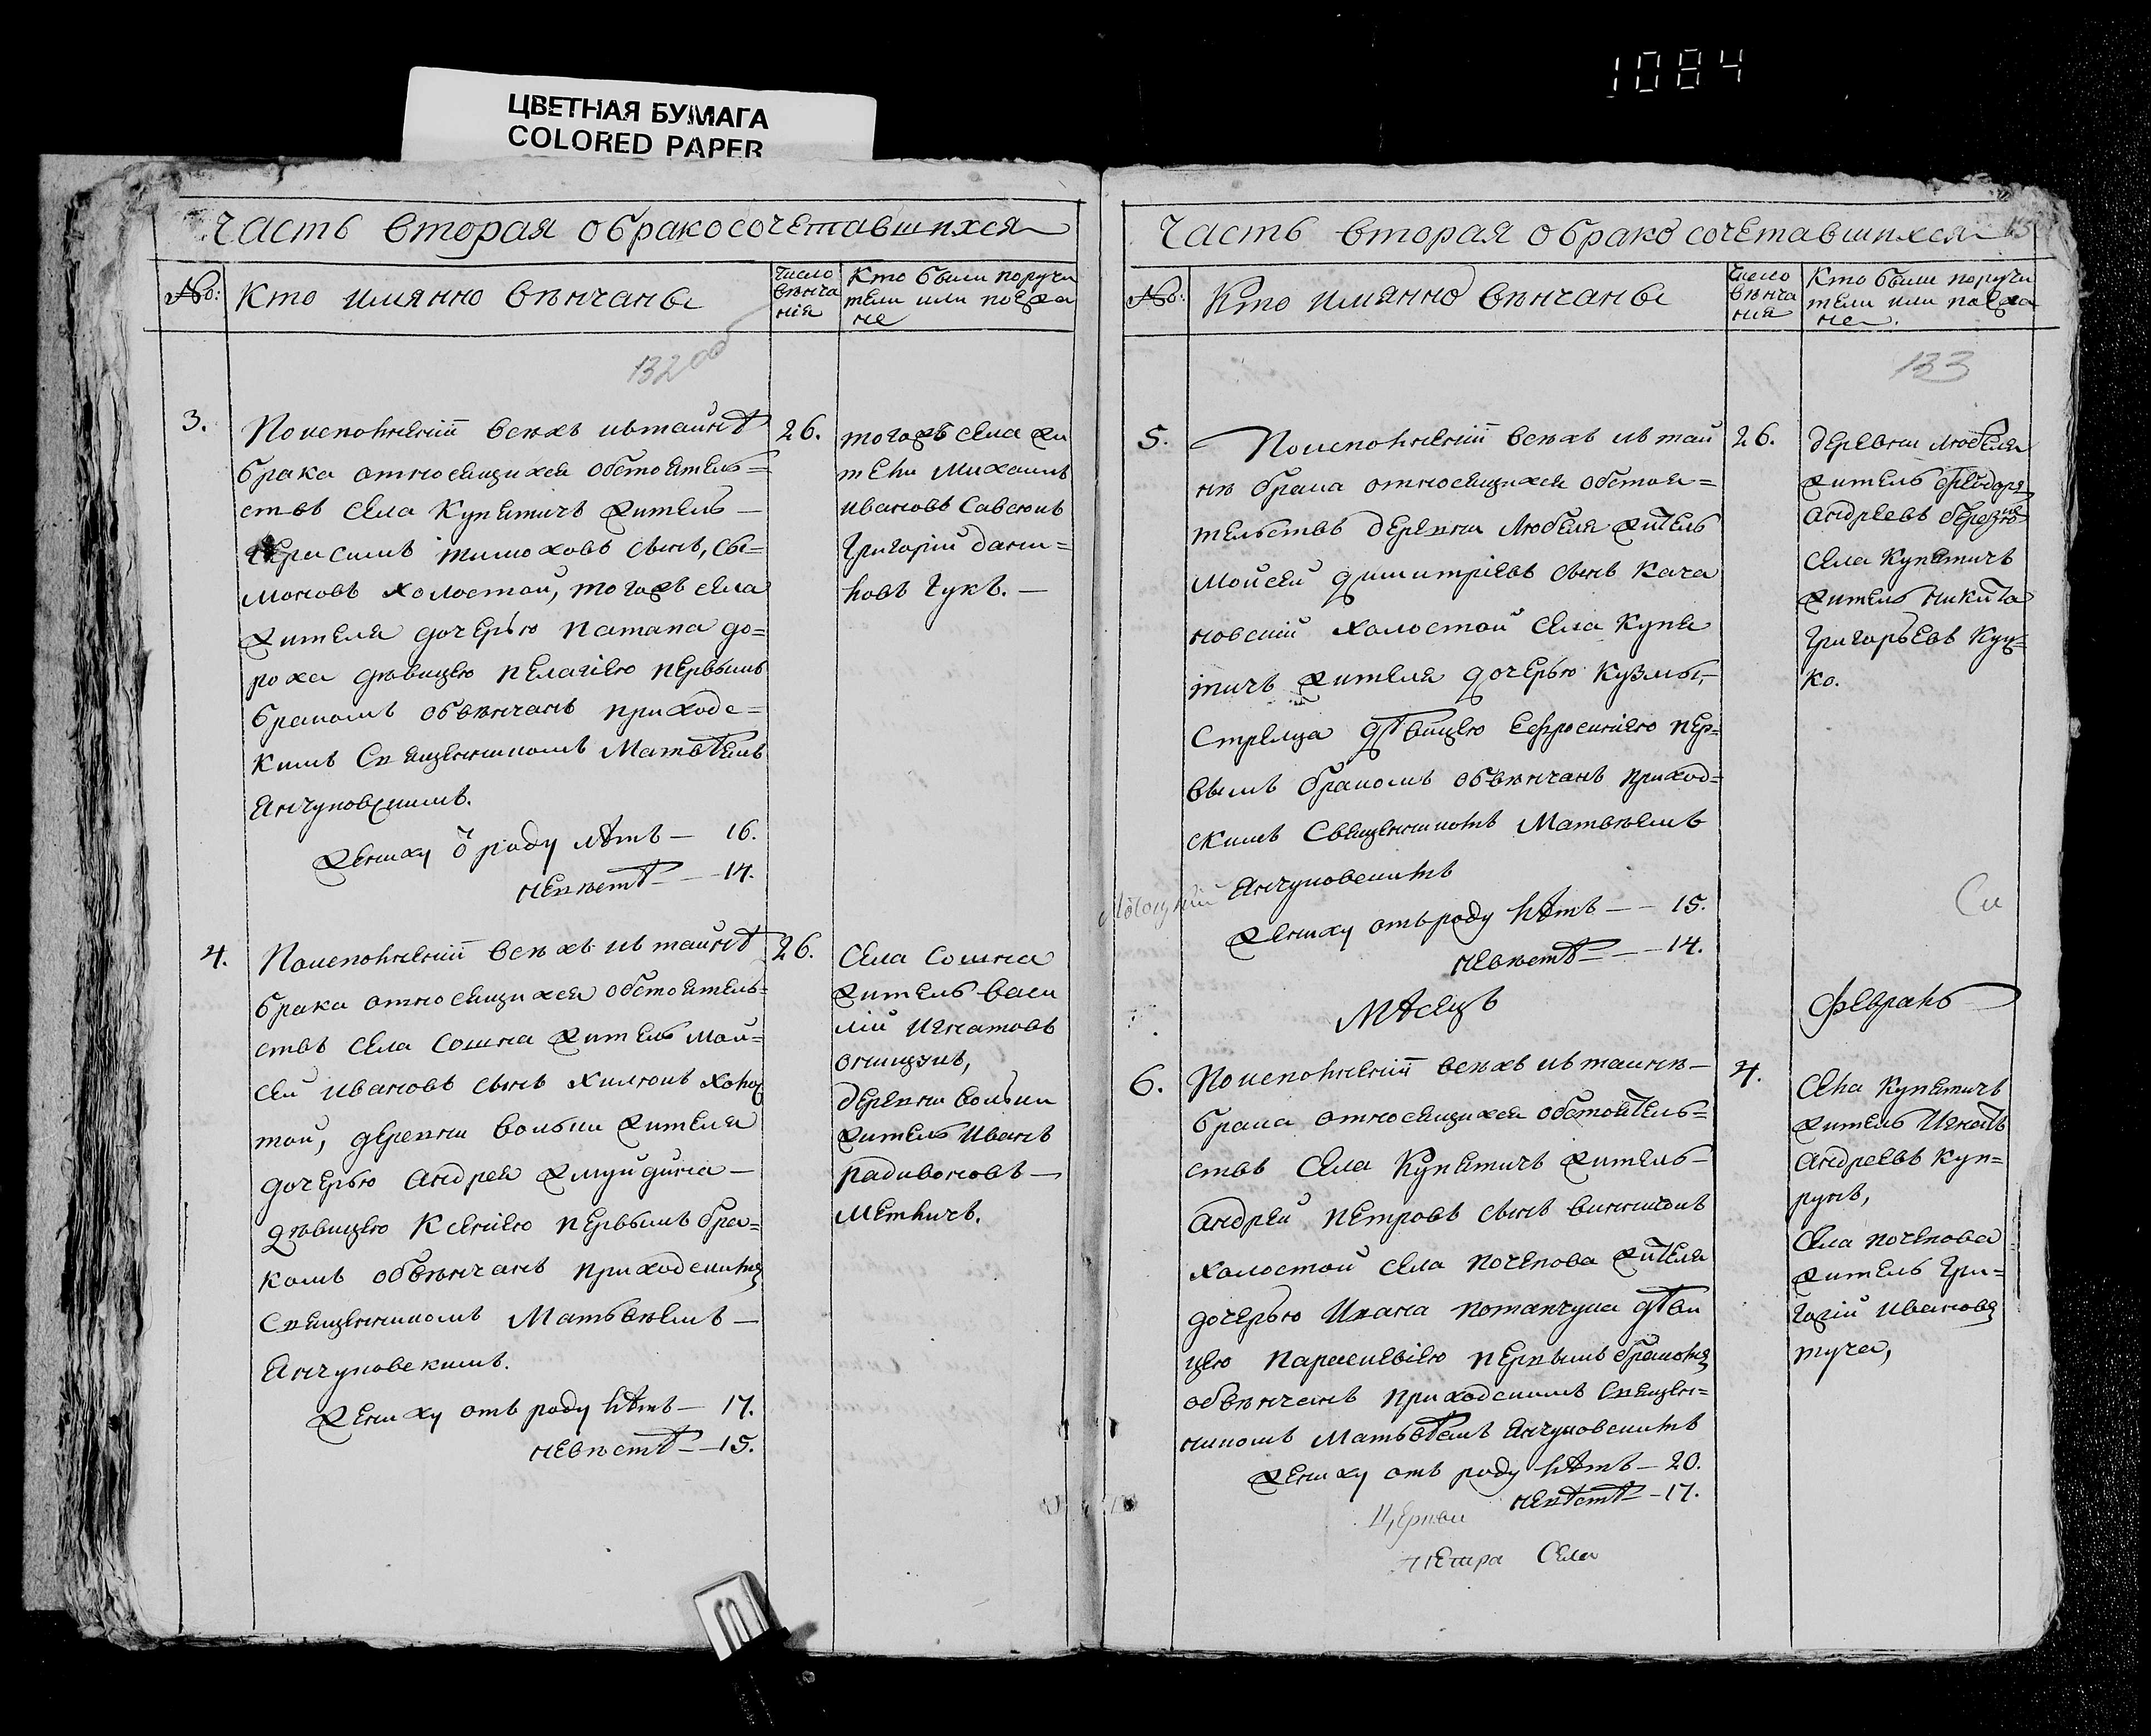 1084
ЦВЕТНАЯ БУМАГА
COLORED PAPER
Часть вторая обракосочетавшихся
No:
Кто имянно вѣнчаны
Число вѣнча нія
Кто были поручи тели или поезжа не
132 об
3.
По исполненіи всѣхъ къ тайнѣ
брака относящихся обстоятель=
ствъ села Купетичъ житель
Герасимъ Тимоховъ сынъ, Си=
моновъ холостой, тогожъ села
жителя дочерью Патапа До=
роха дѣвицею Пелагіею первымъ
бракомъ обвѣнчанъ приходс=
кимъ Священникомъ Матвѣемъ
Анчуковскимъ.
Жениху ѿ роду лѣтъ — 16.
невѣстѣ — 14.
26.
тогожъ села жи
тели Михаилъ
Ивановъ Савенокъ
Григорій Дани=
ловъ Гукъ. —
4.
По исполненіи всѣхъ къ тайнѣ
брака относящихся обстоятель=
ствъ села Сошна житель Мои=
сей Ивановъ сынъ Химокъ холос
той, деревни Волыни жителя
дочерью Андрея Жмуйдина —
дѣвицею Ксеніею первымъ бра=
комъ обвѣнчанъ приходскимъ
Священникомъ Матвѣемъ —
Анчуковскимъ.
Жениху отъ роду лѣтъ — 17.
невѣстѣ — 15.
26.
Села Сошна
житель Васи
лій Игнатовъ
Онищукъ,
деревни Волыни
житель Иванъ
Радивоновъ —
Метличъ.
Часть вторая обракосочетавшихся
No:
Кто имянно вѣнчаны
Число вѣнча ния
Кто были поручи тели или поезжа не.
133
5.
По исполненіи всѣхъ къ тай
нѣ брака относящихся обстоя=
тельствъ деревни Любеля житель
Мойсей Димитріевъ сынъ Кача
новскій холостой села Купе
тичъ жителя дочерью Кузмы
Стрельца дѣвицею Ефросиніею пер=
вымъ бракомъ обвѣнчанъ приход=
скимъ Священникомъ Матвѣемъ
Анчуковскимъ
Жениху отъ роду лѣтъ — 15.
невѣстѣ — 14.
26.
деревни Любеля
житель Ѳеодоръ
Андреевъ
села Купетичъ
житель Никита
Григорьевъ Куц=
ко.
Мѣсяцъ
Февраль
6.
По исполненіи всѣхъ къ тайнѣ —
брака относящихся обстоятель=
ствъ Села Купетичъ житель
Андрей Петровъ сынъ Винникъ
холостой села Почепова жителя
дочерью Ивана Потапчука дѣви
цею Параскевіею первымъ бракомъ
обвѣнчанъ приходскимъ Священ=
никомъ Матвѣемъ Анчуковскимъ
Жениху отъ роду лѣтъ — 20.
невѣстѣ — 17.
4.
Села Купетичъ
житель Игнатъ
Андреевъ Куп=
рукъ,
Села Почепова
житель Гри=
горій Ивановъ
Церкви
Села